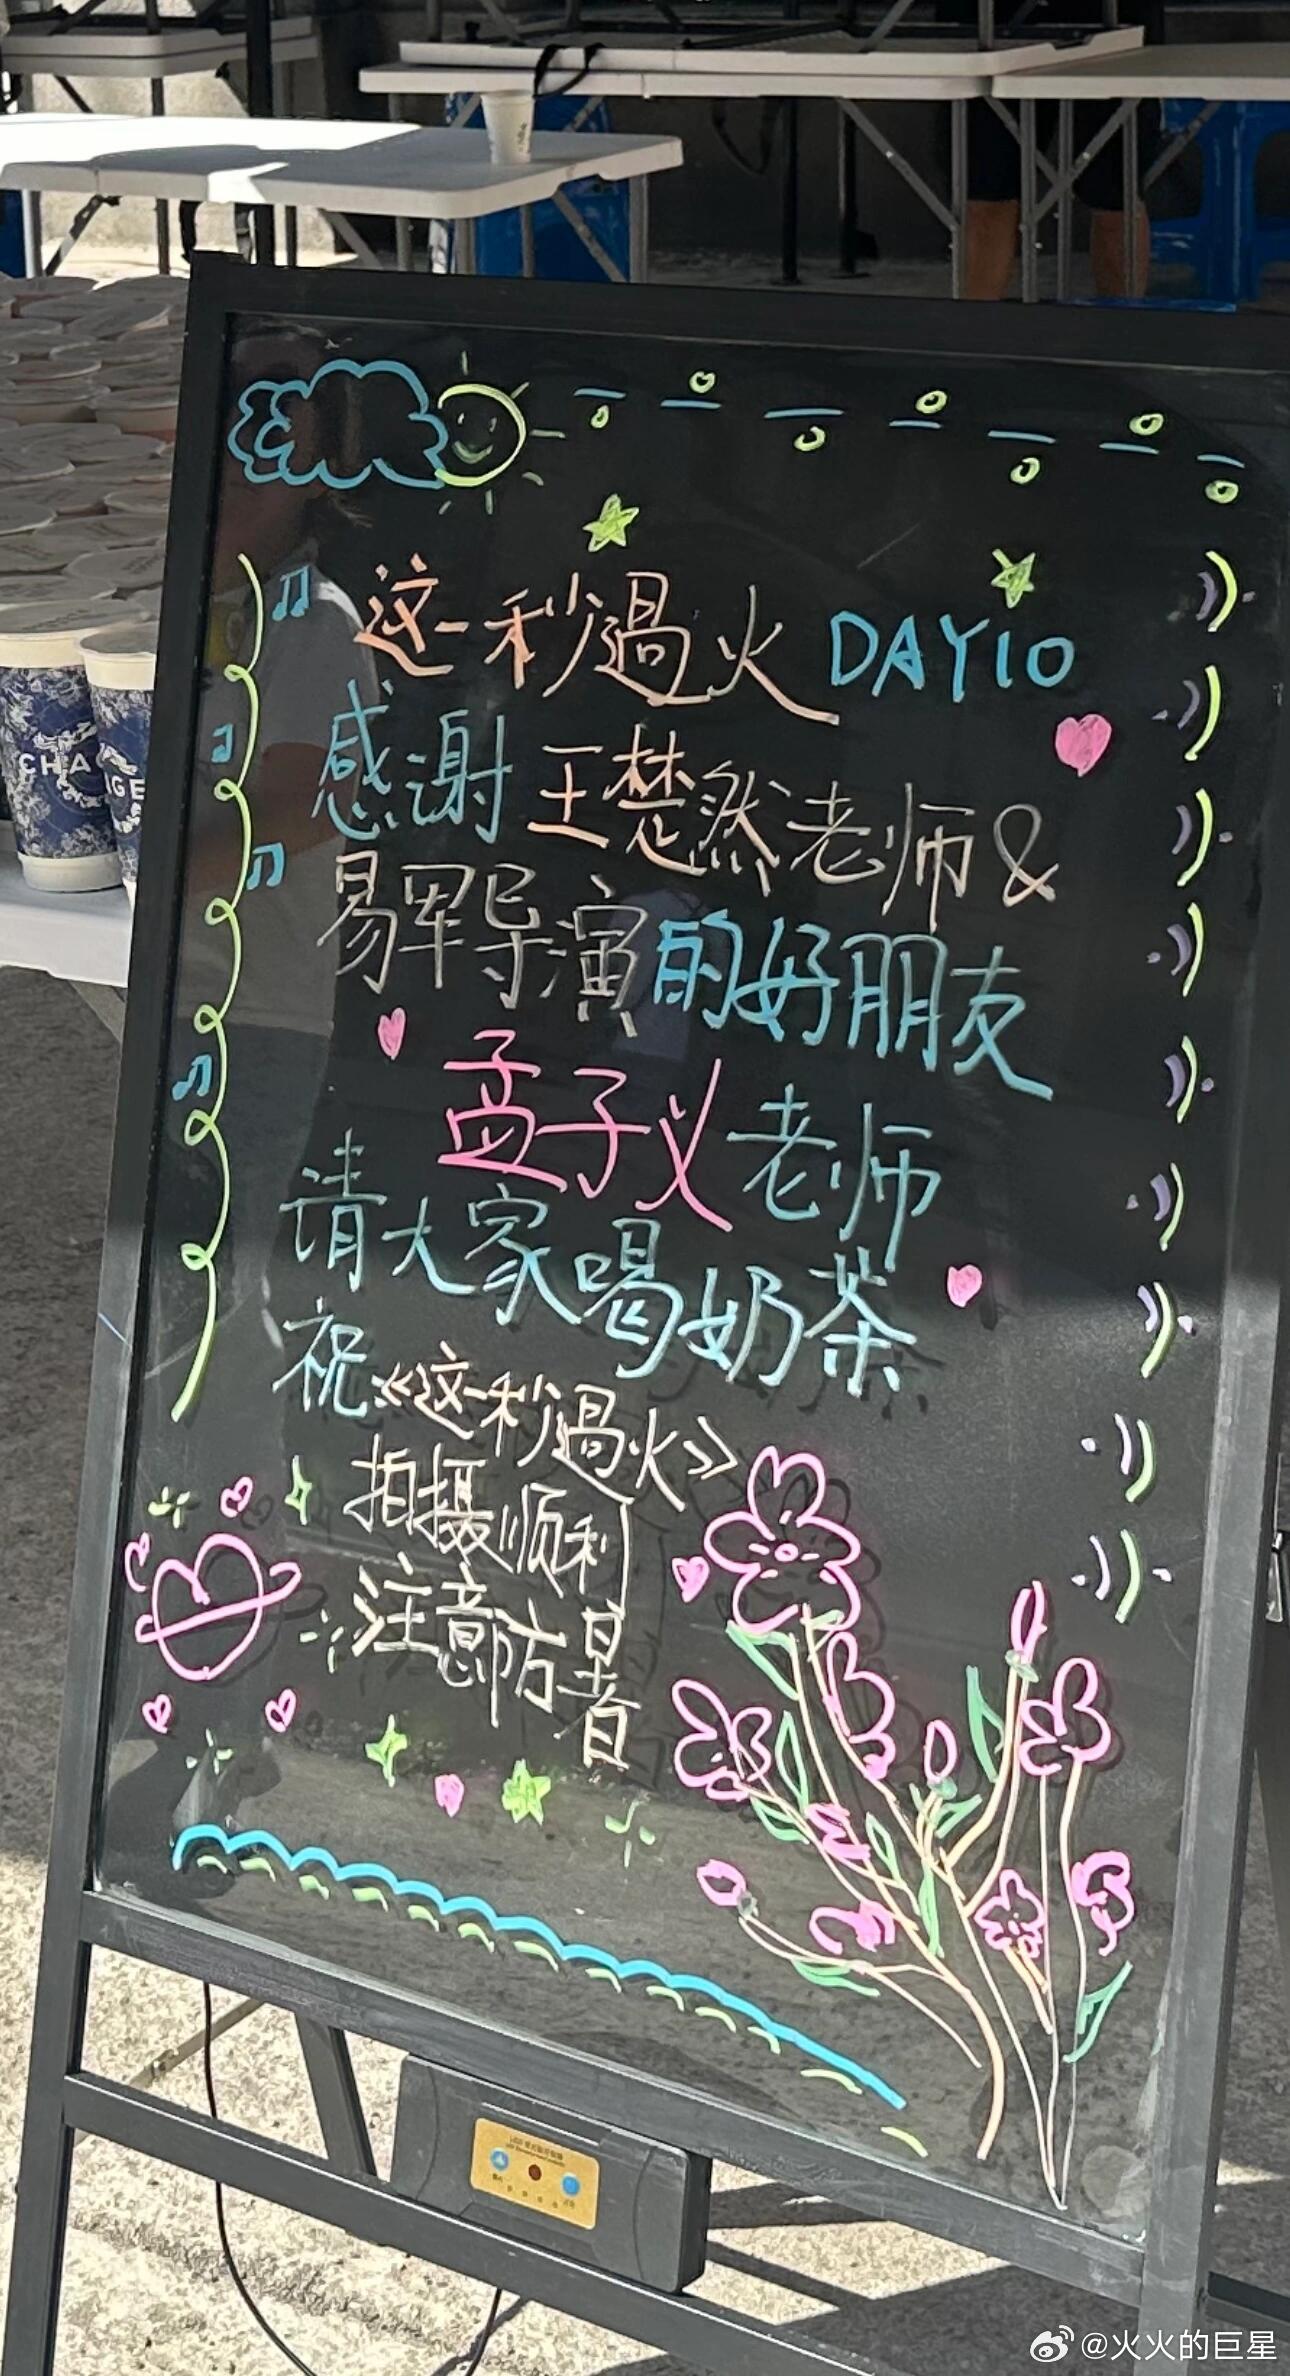 这一秒過火 DAY10
感谢王楚然老师&
易军导演的好朋友
孟子义老师
请大家喝奶茶
祝《这一秒過火》
拍摄顺利
注意防暑
CHA
GE
@火火的巨星